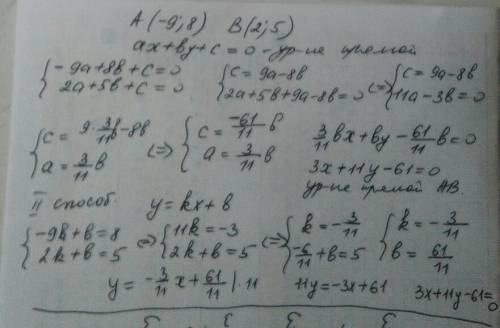 A(-9;8)  B(2;5)
ax+by+c=0 - ур-ие прямой
{-9a+8b+c=0  2a+5b+c=0  {c=9a-8b  2a+5b+9a-8b=0 (=) {c=9a-8b  11a-3b=0
{c=9·3/11b-8b  a=3/11b (=) {c=-61/11b  a=3/11b  3/11bx+by-61/11b=0
3x+11y-61=0
ур-ие прямой AB.
II способ.  y=kx+b
{-9k+b=8  2k+b=5 (=) {11k=-3  2k+b=5 (=) {k=-3/11  -6/11+b=5  {k=-3/11  b=61/11
y=-3/11x+61/11 |·11  11y=-3x+61  3x+11y-61=0